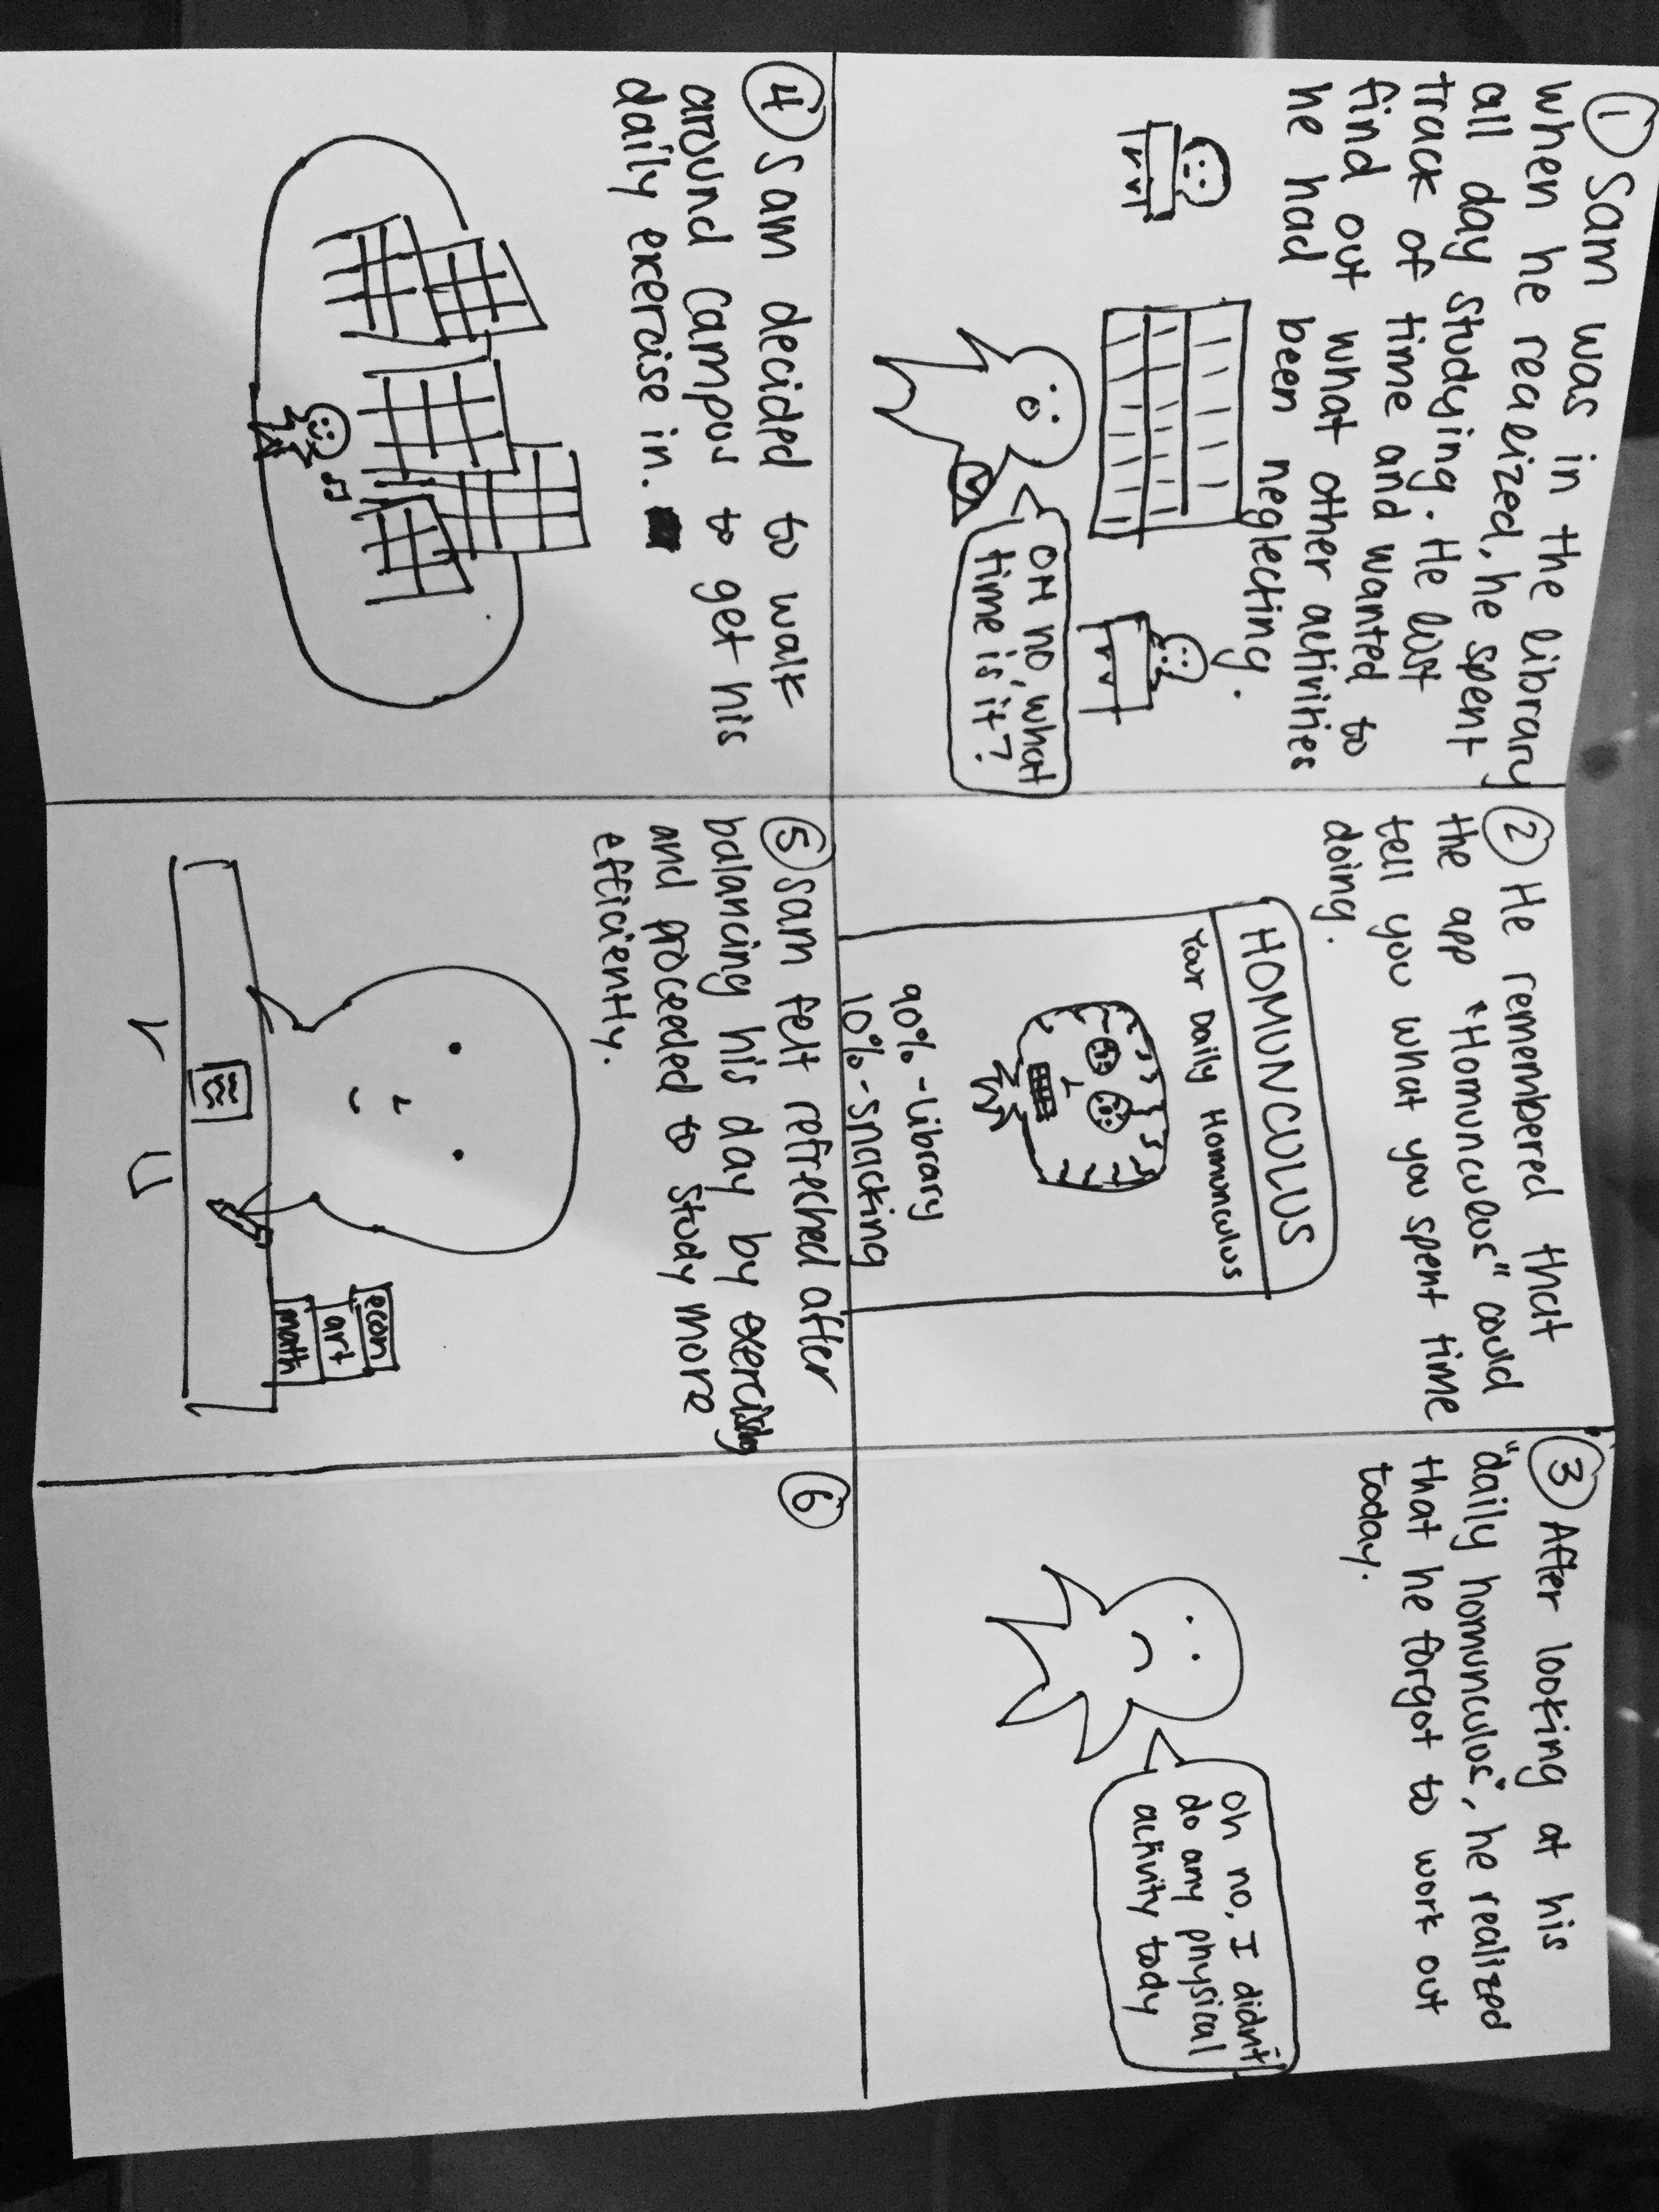 ① Sam was in the library
when he realized, he spent
all day studying. He lost
track of time and wanted to
find out what other activities
he had been neglecting.
OH no, what
time is it?
② He remembered that
the app "Homunculus" could
tell you what you spent time
doing.
HOMUNCULUS
Your Daily Homunculus
90% - Library
10% - Snacking
③ After looking at his
"daily homunculus", he realized
that he forgot to work out
today.
Oh no, I didn't
do any physical
activity tody
④ Sam decided to walk
around campus to get his
daily exercise in.
⑤ Sam felt refreched after
balancing his day by exercising
and proceeded to study more
efficiently.
econ
art
math
⑥